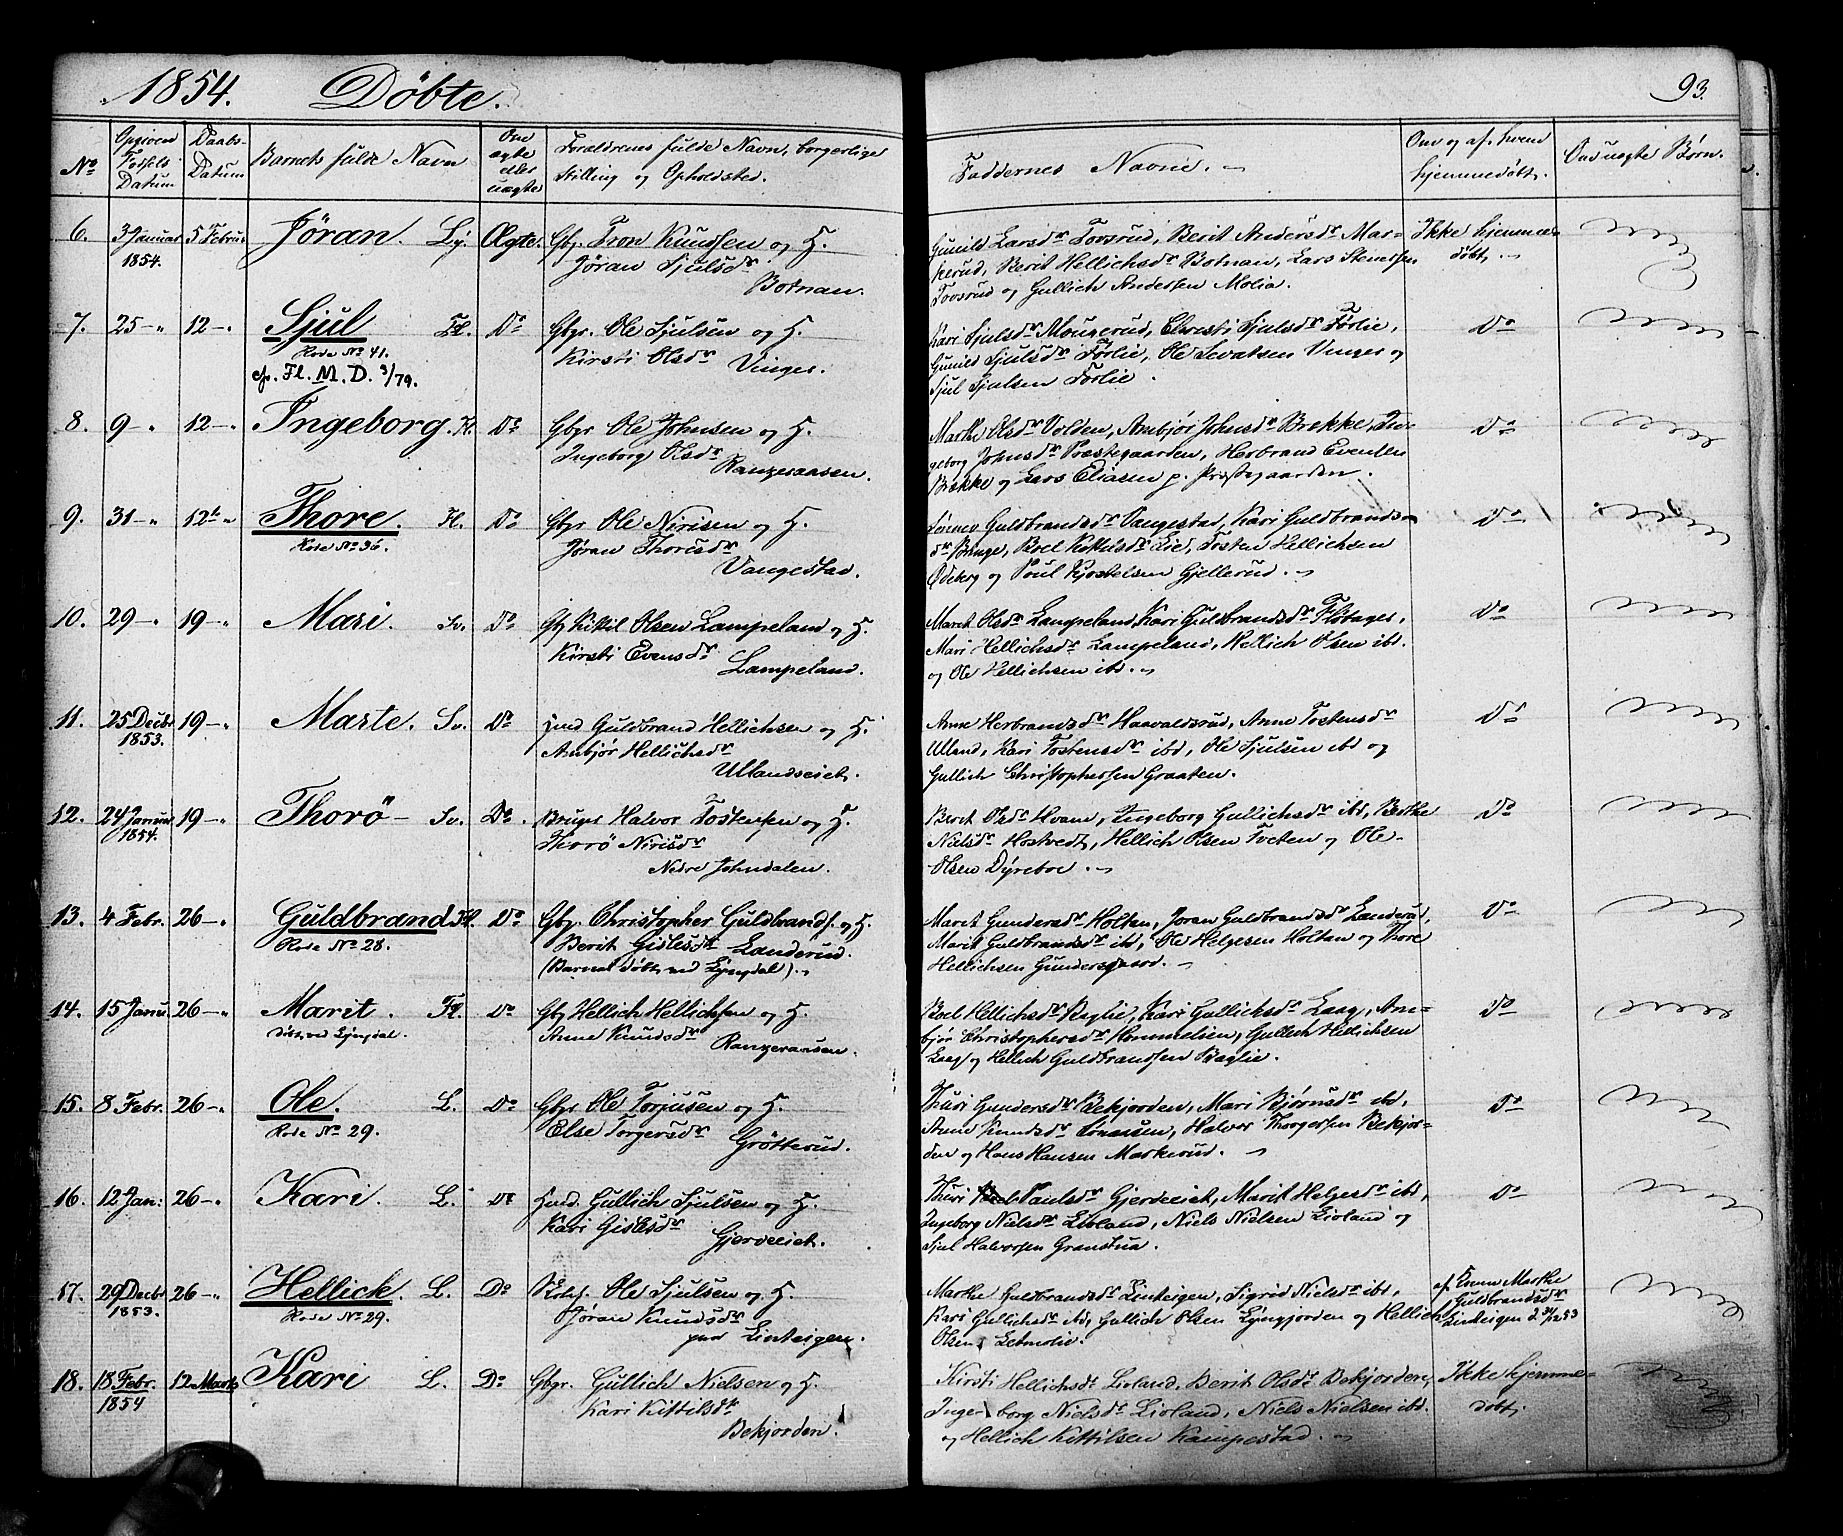 1854. Döbte.
93.
No
Opgiven Fødsels Datum
Daabs-Datum
Barnets fulde Navn
Om ægte eller uægte
Forældrenes fulde Navn, borgerlige Stilling og Opholdsted.
Faddernes Navne.
Om og af hvem hjemmedøbt.
Om uægte Børn.
6. 3 Januar 1854. 5 Februar Jöran. Ly. Ægte. Gbr. Tron Knudsen og H.
Jöran Sjulsdr
Botnan.
Gunild Larsdr Tovsrud, Berit Andersdr Mar-
kerud, Berit Hellichsdr Botnan, Lars Stenersen
Tovsrud og Gullich Andersen Molia.
Ikke hjemme-
döbt.
7. 25 — " 12 — " Sjul Fl. Do Gbr. Ole Sjulsen og H.
Rode No 41.
cfr. Fl. M. D. 3/79.
Kirsti Olsdr Vinger.
Kari Sjulsdr Mouserud, Christi Sjulsdr Førlie,
Gunild Sjulsdr Førlie, Ole Levalsen Venges og
Sjul Sjulsen Förlie.
Do
8. 9 — " 12 — " Ingeborg. Fl. Do Gbr Ole Johnsen og H.
Ingeborg Olsdr
Ranzeraasen.
Marthe Olsdr Volden, Ambjør Johnsdr Brekke, In-
geborg Johnsdr Præstegaarden, Herbrand Evensen
Brekke og Lars Eliasen p. Præstegaarden.
Do
9. 31 — " 12te " Thore. Fl. Do Gbr Ole Nirisen og H.
Rode No 36.
Jøran Thoresdr
Vangestad.
Guldbrandsdr Vangestad, Kari Guldbrands-
dr Bringe, Boel Kittilsdr Lie, Tosten Hellichsen
Ødeberg og Poul Kjostelsen Gjellerud.
Do
10. 29 — " 19 — " Mari. Sv. Do Gbr Kittil Olsen Lampeland og H.
Kirsti Evensdr
Lampeland.
Maret Olsdr Lampeland, Kari Guldbrandsdr Flobages,
Mari Hellichsdr Lampeland, Hellich Olsen ibd.
og Ole Hellichsen ibd.
Do
11. 25 Decbr 1853. 19 — " Marte. Sv. Do Hmd Guldbrand Hellichsen og H.
Ambjör Hellichsdr
Ullandseiet.
Anne Herbrandsdr Haavaldsrud, Anne Tostensdr
Ulland, Kari Tostensdr ibd, Ole Sjulsen ibd og
Gullich Christophersen Graaten.
Do
12. 24 Januar 1854. 19 — " Thorö — Sv. Do. Bruger Halvor Tostensen og H.
Thorö Nirisdr
Nedre Johndalen.
Berit Olsdr Hvam, Ingeborg Gullichsdr ibd, Berthe
Nielsdr Hostvedt, Hellich Olsen Tveten og Ole
Olsen Dyreboe.
Do
13. 4 Febr. 26 — " Guldbrand Fl. Do Gbr. Christopher Guldbrands. og H.
Rode No 28.
Berit Gislesdr Landerud.
(Barnet döbt ved Lyngdal).
Maret Gundersdr Holtan, Jøran Guldbrandsdr Landerud,
Marit Guldbrandsdr ibd, Ole Helgesen Holtan og Thore
Hellichsen Gundersgaard.
Do
14. 15 Janu. 26 — " Marit. Fl. Do Gbr Hellich Hellichsen og H.
Döbt ved Lyngdal.
Anne Knudsdr
Ranzeraasen.
Boel Hellichsdr Baglie, Kari Gullichsdr Laag, Am-
björ Christophersdr Hommelien, Gullich Hellichsen
Laag og Hellich Guldbrandsen Baglie.
Do
15. 8 Febr. 26 — " Ole. L. Do Gbr Ole Torjusen og H.
Rode No 29.
Else Torgersdr Grötterud.
Thuri Gundersdr Bekjorden, Mari Bjørnsdr ibd,
Anne Knudsdr Halvor Thorgersen Bekjor-
den og Hans Hansen Markerud.
Do
16. 12 Jan: 26 — " Kari. L. Do Hmd. Gullich Sjulsen og H.
Kari Gislesdr
Gjerdeeiet.
Thuri Paulsdr Gjerdeeiet, Marit Helgesdr ibd,
Ingeborg Nielsdr Livland, Niels Nielsen Livland og
Sjul Halvorsen Granstua.
Do
17. 29 Decbr 1853. 26 — " Hellick. L. Do Ole Sjulsen og H.
Rode No 29.
Jöran Knudsdr
paa Linteigen.
Marthe Guldbrandsdr Linteigen, Sigrid Nielsdr ibd,
Kari Gullichsdr ibd, Gullich Olsen Lyngjorden og Hellich
Olsen Letmolie.
af Konen Marthe
Guldbrandsdr
Linteigen d 31/12 53
18. 18 Febr. 1854 12 Marts Kari L. Do Gbgr. Gullich Nielsen og H.
Kari Kittilsdr
Bekjorden.
Kirsti Hellichsdr Livland, Berit Olsdr Bekjorden,
Ingeborg Nielsdr Livland, Niels Nielsen ibd.
og Hellich Kittilsen Kampestad.
Ikke hjemme-
döbt.